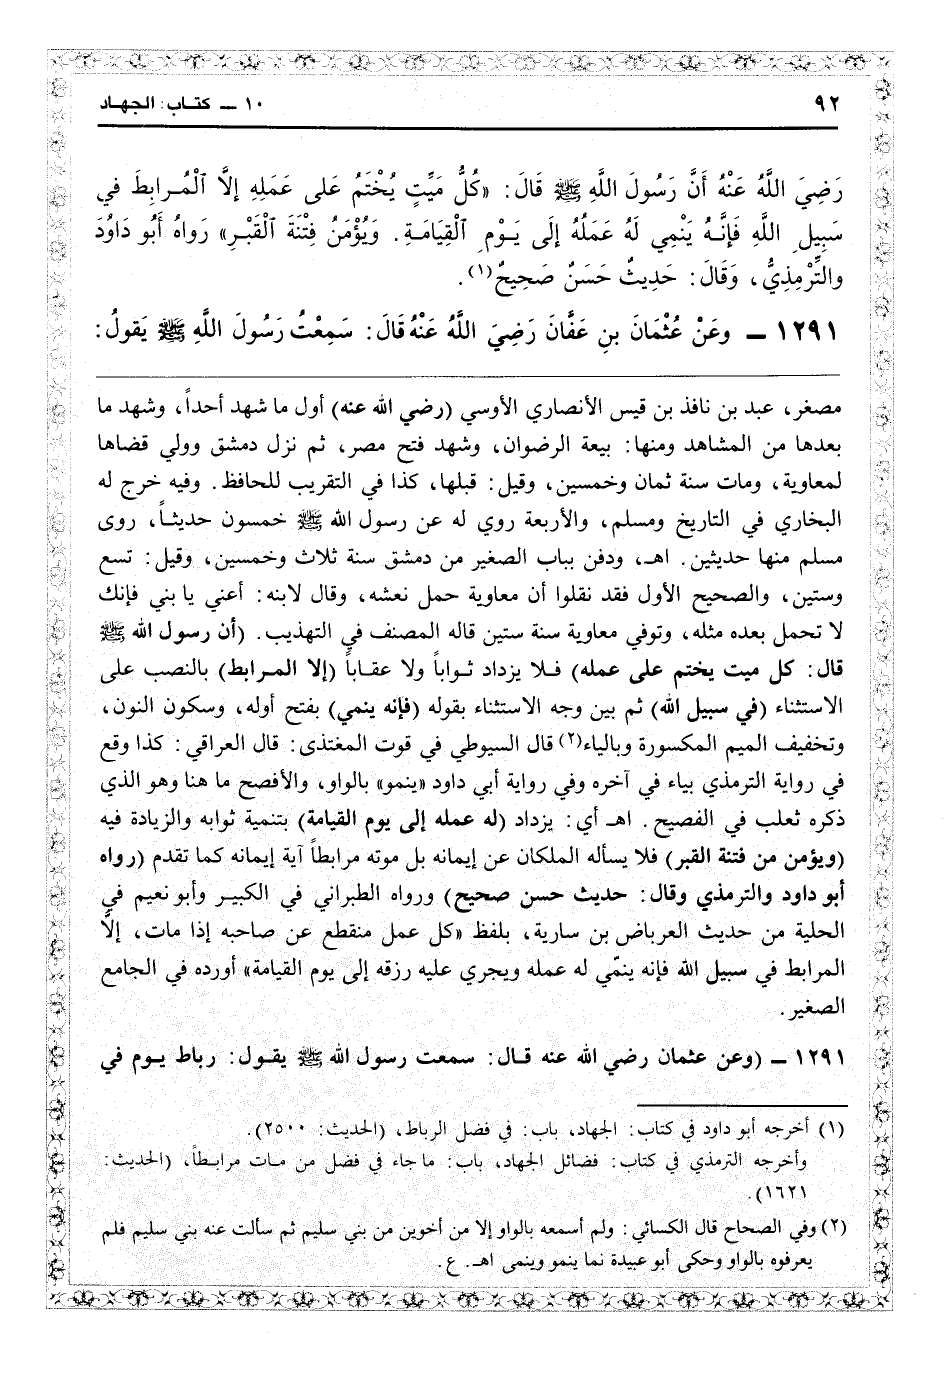 ٩٢
١٠ ــ كتـاب: الجهـاد
رَضِيَ اللَّهُ عَنْهُ أَنَّ رَسُولَ اللَّهِ ﷺ قَالَ: «كُلُّ مَيِّتٍ يُخْتَمُ عَلى عَمَلِهِ إلَّا ٱلْمُـرابِطَ في
سَبِيلِ اللَّهِ فَإِنَّـهُ يَنْمِي لَهُ عَمَلُهُ إلَى يَـوْمِ ٱلْقِيَامَـةِ. وَيُؤْمَنُ فِتْنَةَ ٱلْقَبْرِ» رَواهُ أَبُو دَاوُدَ
والتِّرْمِذِيُّ، وَقَالَ: حَدِيثٌ حَسَنٌ صَحِيحٌ(١).
١٢٩١ ــ وعَنْ عُثْمَانَ بنِ عَفَّانَ رَضِيَ اللَّهُ عَنْهُ قَالَ: سَمِعْتُ رَسُولَ اللَّهِ ﷺ يَقولُ:
مصغر، عبد بن نافذ بن قيس الأنصاري الأوسي (رضي الله عنه) أول ما شهد أحداً، وشهد ما
بعدها من المشاهد ومنها: بيعة الرضوان، وشهد فتح مصر، ثم نزل دمشق وولي قضاها
لمعاوية، ومات سنة ثمان وخمسين، وقيل: قبلها، كذا في التقريب للحافظ. وفيه خرج له
البخاري في التاريخ ومسلم، والأربعة روي له عن رسول الله ﷺ خمسون حديثـاً، روى
مسلم منها حديثين. اهـ، ودفن بباب الصغير من دمشق سنة ثلاث وخمسين، وقيل: تسع
وستين، والصحيح الأول فقد نقلوا أن معاوية حمل نعشه، وقال لابنه: أعني يا بني فإنك
لا تحمل بعده مثله، وتوفي معاوية سنة ستين قاله المصنف في التهذيب. (أن رسول الله ﷺ
قال: كل ميت يختم على عمله) فـلا يزداد ثـواباً ولا عقـاباً (إلا المـرابط) بالنصب على
الاستثناء (في سبيل الله) ثم بين وجه الاستثناء بقوله (فإنه ينمي) بفتح أوله، وسكون النون،
وتخفيف الميم المكسورة وبالياء(٢) قال السيوطي في قوت المغتذى: قال العراقي: كذا وقع
في رواية الترمذي بياء في آخره وفي رواية أبي داود «ينمو» بالواو، والأفصح ما هنا وهو الذي
ذكره ثعلب في الفصيح. اهـ أي: يزداد (له عمله إلى يوم القيامة) بتنمية ثوابه والزيادة فيه
(ويؤمن من فتنة القبر) فلا يسأله الملكان عن إيمانه بل موته مرابطاً آية إيمانه كما تقدم (رواه
أبو داود والترمذي وقال: حديث حسن صحيح) ورواه الطبراني في الكبيـر وأبو نعيم في
الحلية من حديث العرباض بن سارية، بلفظ «كل عمل منقطع عن صاحبه إذا مات، إلَّا
المرابط في سبيل الله فإنه ينمّي له عمله ويجري عليه رزقه إلى يوم القيامة» أورده في الجامع
الصغير.
١٢٩١ ــ (وعن عثمان رضي الله عنه قـال: سمعت رسول الله ﷺ يقـول: رباط يـوم في
(١) أخرجه أبو داود في كتاب: الجهاد، باب: في فضل الرباط، (الحديث: ٢٥٠٠).
وأخرجه الترمذي في كتاب: فضائل الجهاد، باب: ما جاء في فضل من مـات مرابـطاً، (الحديث:
١٦٢١).
(٢) وفي الصحاح قال الكسائي: ولم أسمعه بالواو إلا من أخوين من بني سليم ثم سألت عنه بني سليم فلم
يعرفوه بالواو وحكى أبو عبيدة نما ينمو وينمى اهـ. ع.